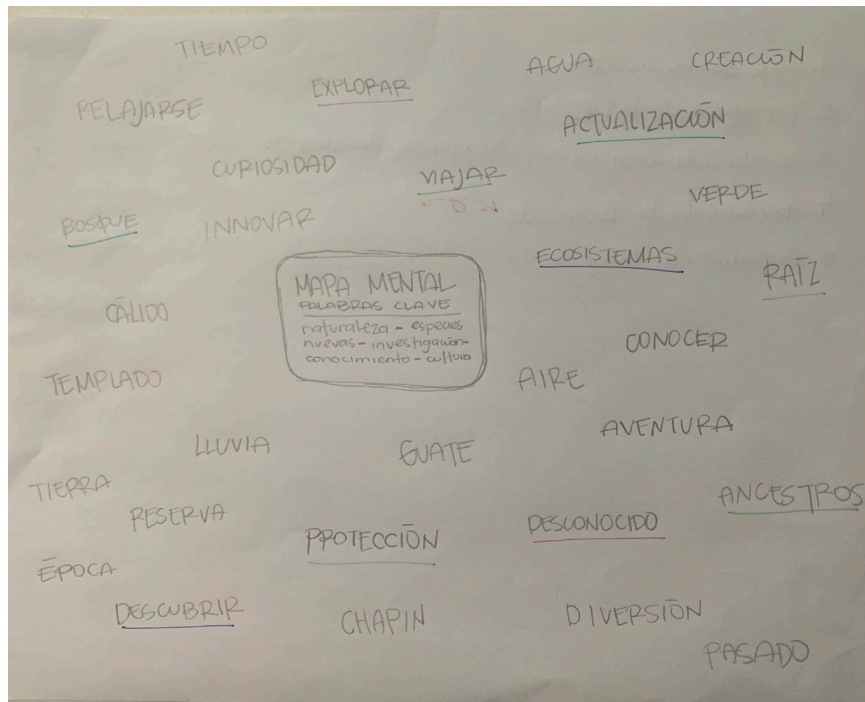 TIEMPO
AGUA
CREACIÓN
EXPLORAR
RELAJARSE
ACTUALIZACIÓN
CURIOSIDAD
VIAJAR
VERDE
BOSQUE
INNOVAR
ECOSISTEMAS
RAÍZ
MAPA MENTAL
PALABRAS CLAVE
naturaleza - especies
nuevas - investigación-
conocimiento - cultura
CÁLIDO
CONOCER
TEMPLADO
AIRE
LLUVIA
GUATE
AVENTURA
TIERRA
RESERVA
ANCESTROS
PROTECCIÓN
DESCONOCIDO
ÉPOCA
DESCUBRIR
CHAPIN
DIVERSIÓN
PASADO